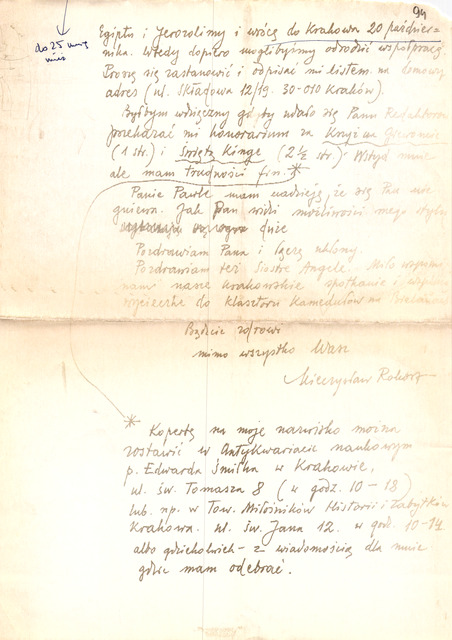 94
do 25 maja
Egiptu i Jerozolimy i wrócę do Krakowa 20 paździer-
nika. Wtedy dopiero moglibyśmy odrodzić współpracę
Proszę się zastanowić i odpisać mi listem na domowy
adres (ul. Składowa 12/19. 30-010 Kraków).
Byłbym wdzięczny gdyby udało się Panu Redaktorowi
przekazać mi honorarium za Krzyż na Giewoncie
(1 str.) i Świętą Kingę (2 ½ str.). Wstyd mnie
ale mam trudności fin. *
Panie Pawle mam nadzieję, że się Pan nie
gniewa. Jak Pan widzi możliwości mego
duże
Pozdrawiam Pana i łączę ukłony.
Pozdrawiam też Siostrę Angelę. Miło wspomi-
nam nasze krakowskie spotkanie i
wycieczkę do klasztoru Kamedułów na Bielanach
Bądźcie zdrowi
mimo wszystko Wasz
Mieczysław
* Kopertę na moje nazwisko można
zostawić w Antykwariacie naukowym
p. Edwarda Śmiłka w Krakowie,
ul. św. Tomasza 8 (w godz. 10-18)
lub np. w Tow. Miłośników Historii i Zabytków
Krakowa. ul. św. Jana 12. w godz. 10-14
albo gdziekolwiek - z wiadomością dla mnie
gdzie mam odebrać.